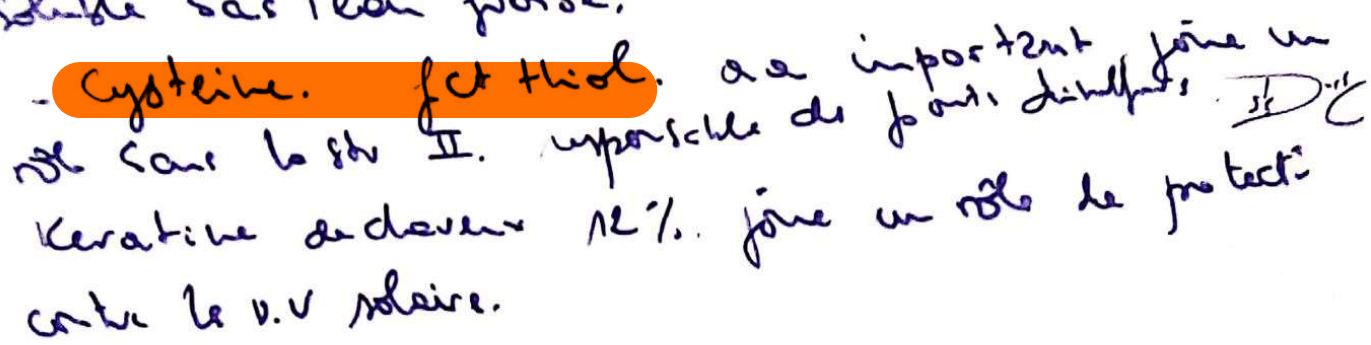 soluble dans l'eau froide.
- Cysteine. fct thiol. aa important joue un
rôle dans la str II. responsable des ponts disulfures.
Keratine de cheveux 12%. joue un rôle de protect°
contre le U.V solaire.